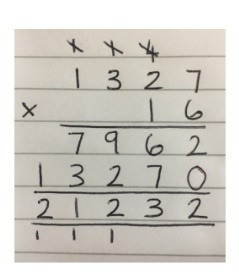 1 1 4
1 3 2 7
× 1 6
7 9 6 2
1 3 2 7 0
2 1 2 3 2
1 1 1